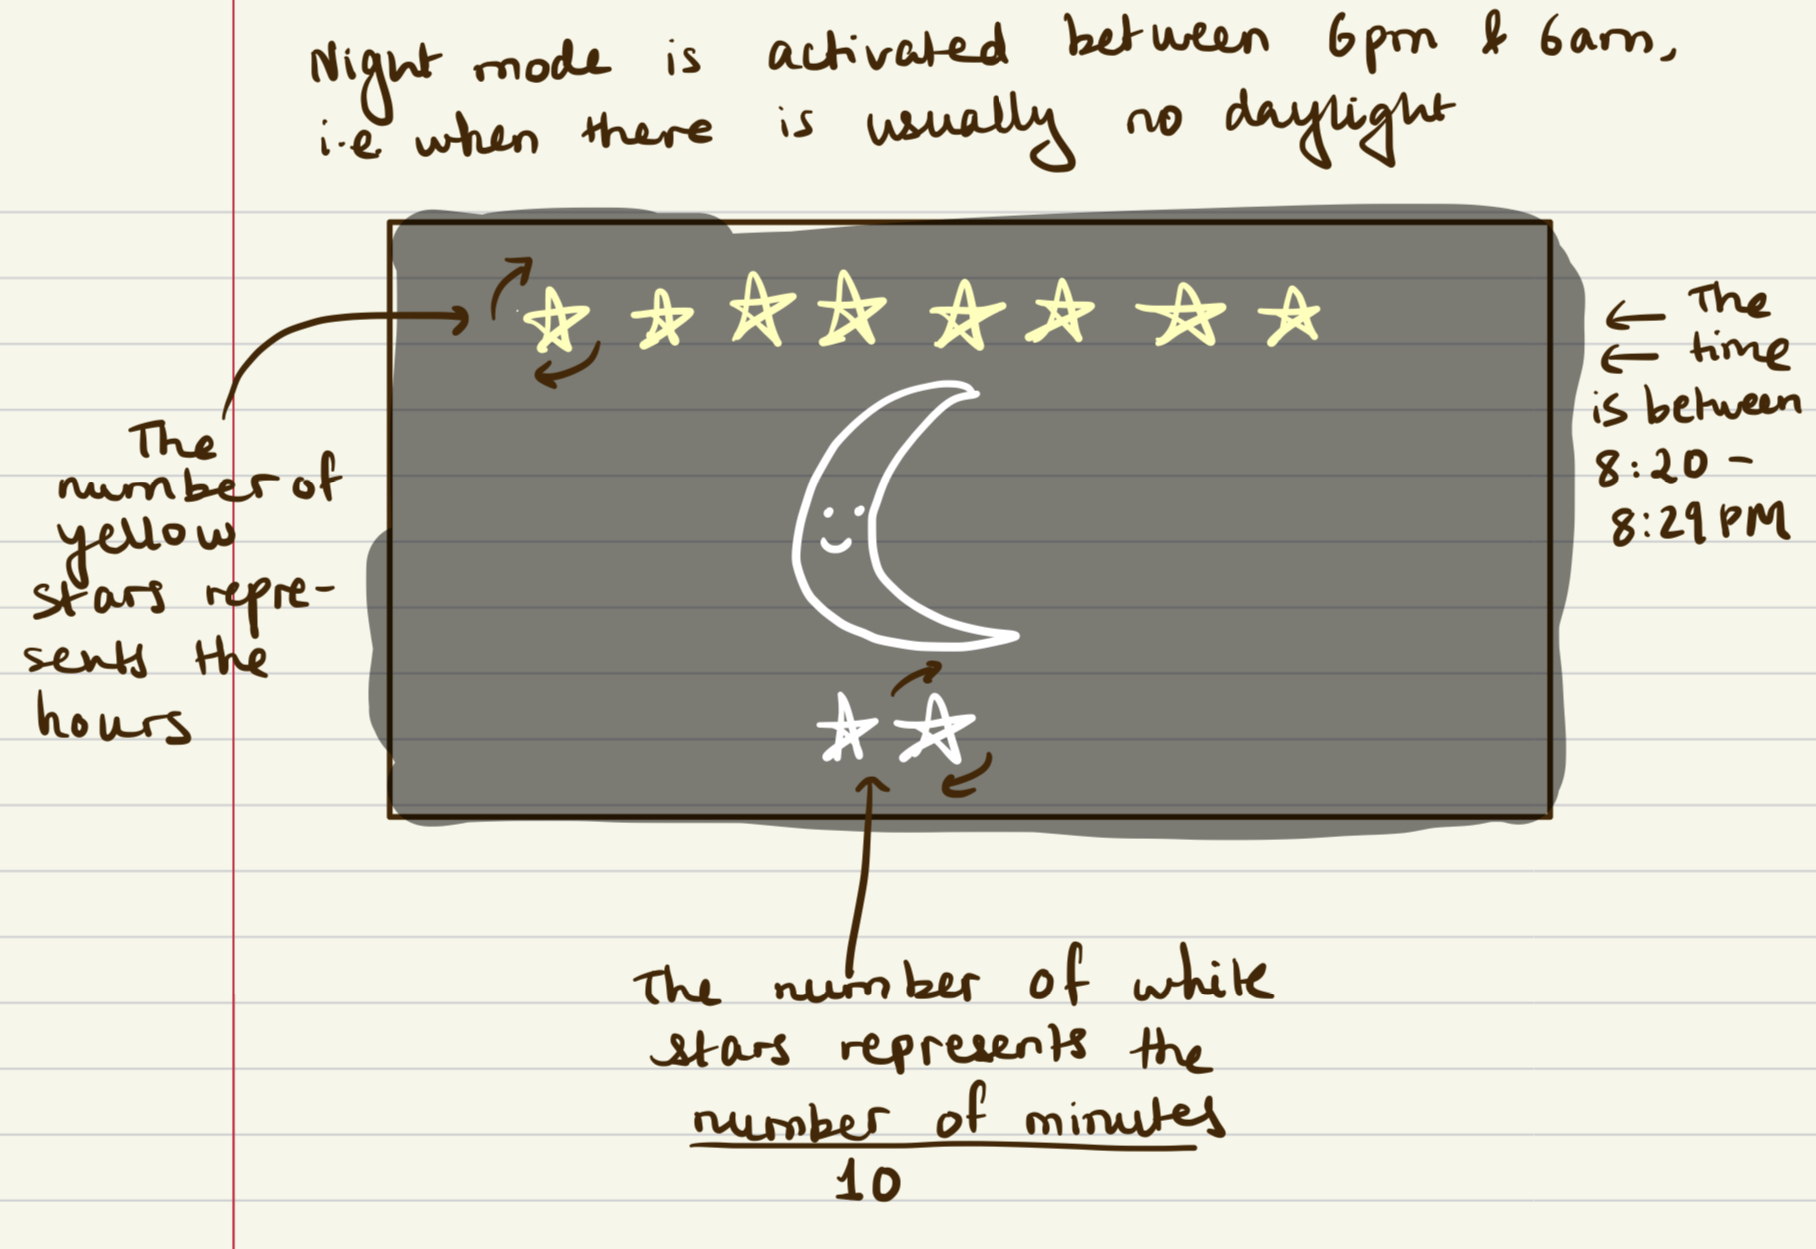 Night mode is activated between 6pm & 6am,
i.e when there is usually no daylight
The
number of
yellow
stars repre-
sents the
hours
← The
← time
is between
8:20 -
8:29 PM
The number of white
stars represents the
number of minutes
10